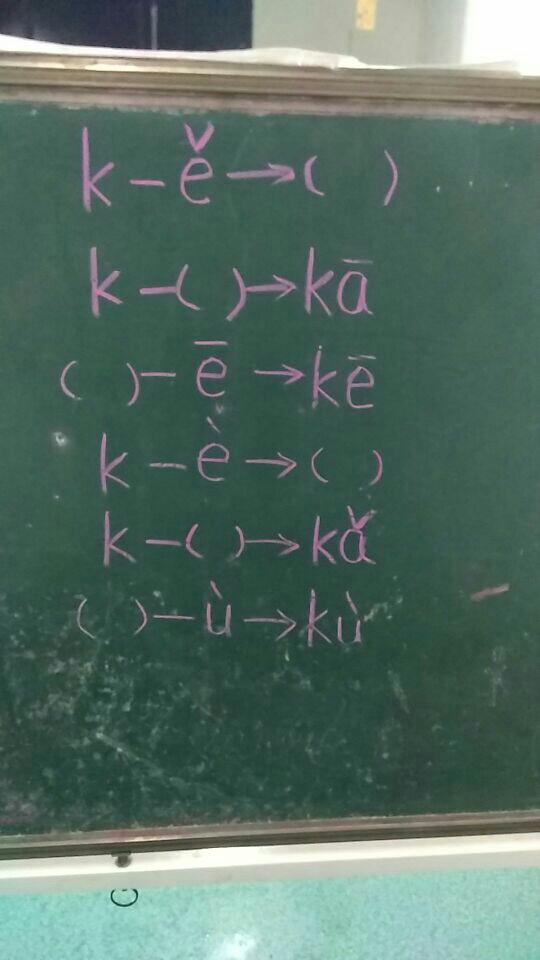 k - ě → ( )
k - ( ) → kā
( ) - ē → kē
k - è → ( )
k - ( ) → kǎ
( ) - ù → kù